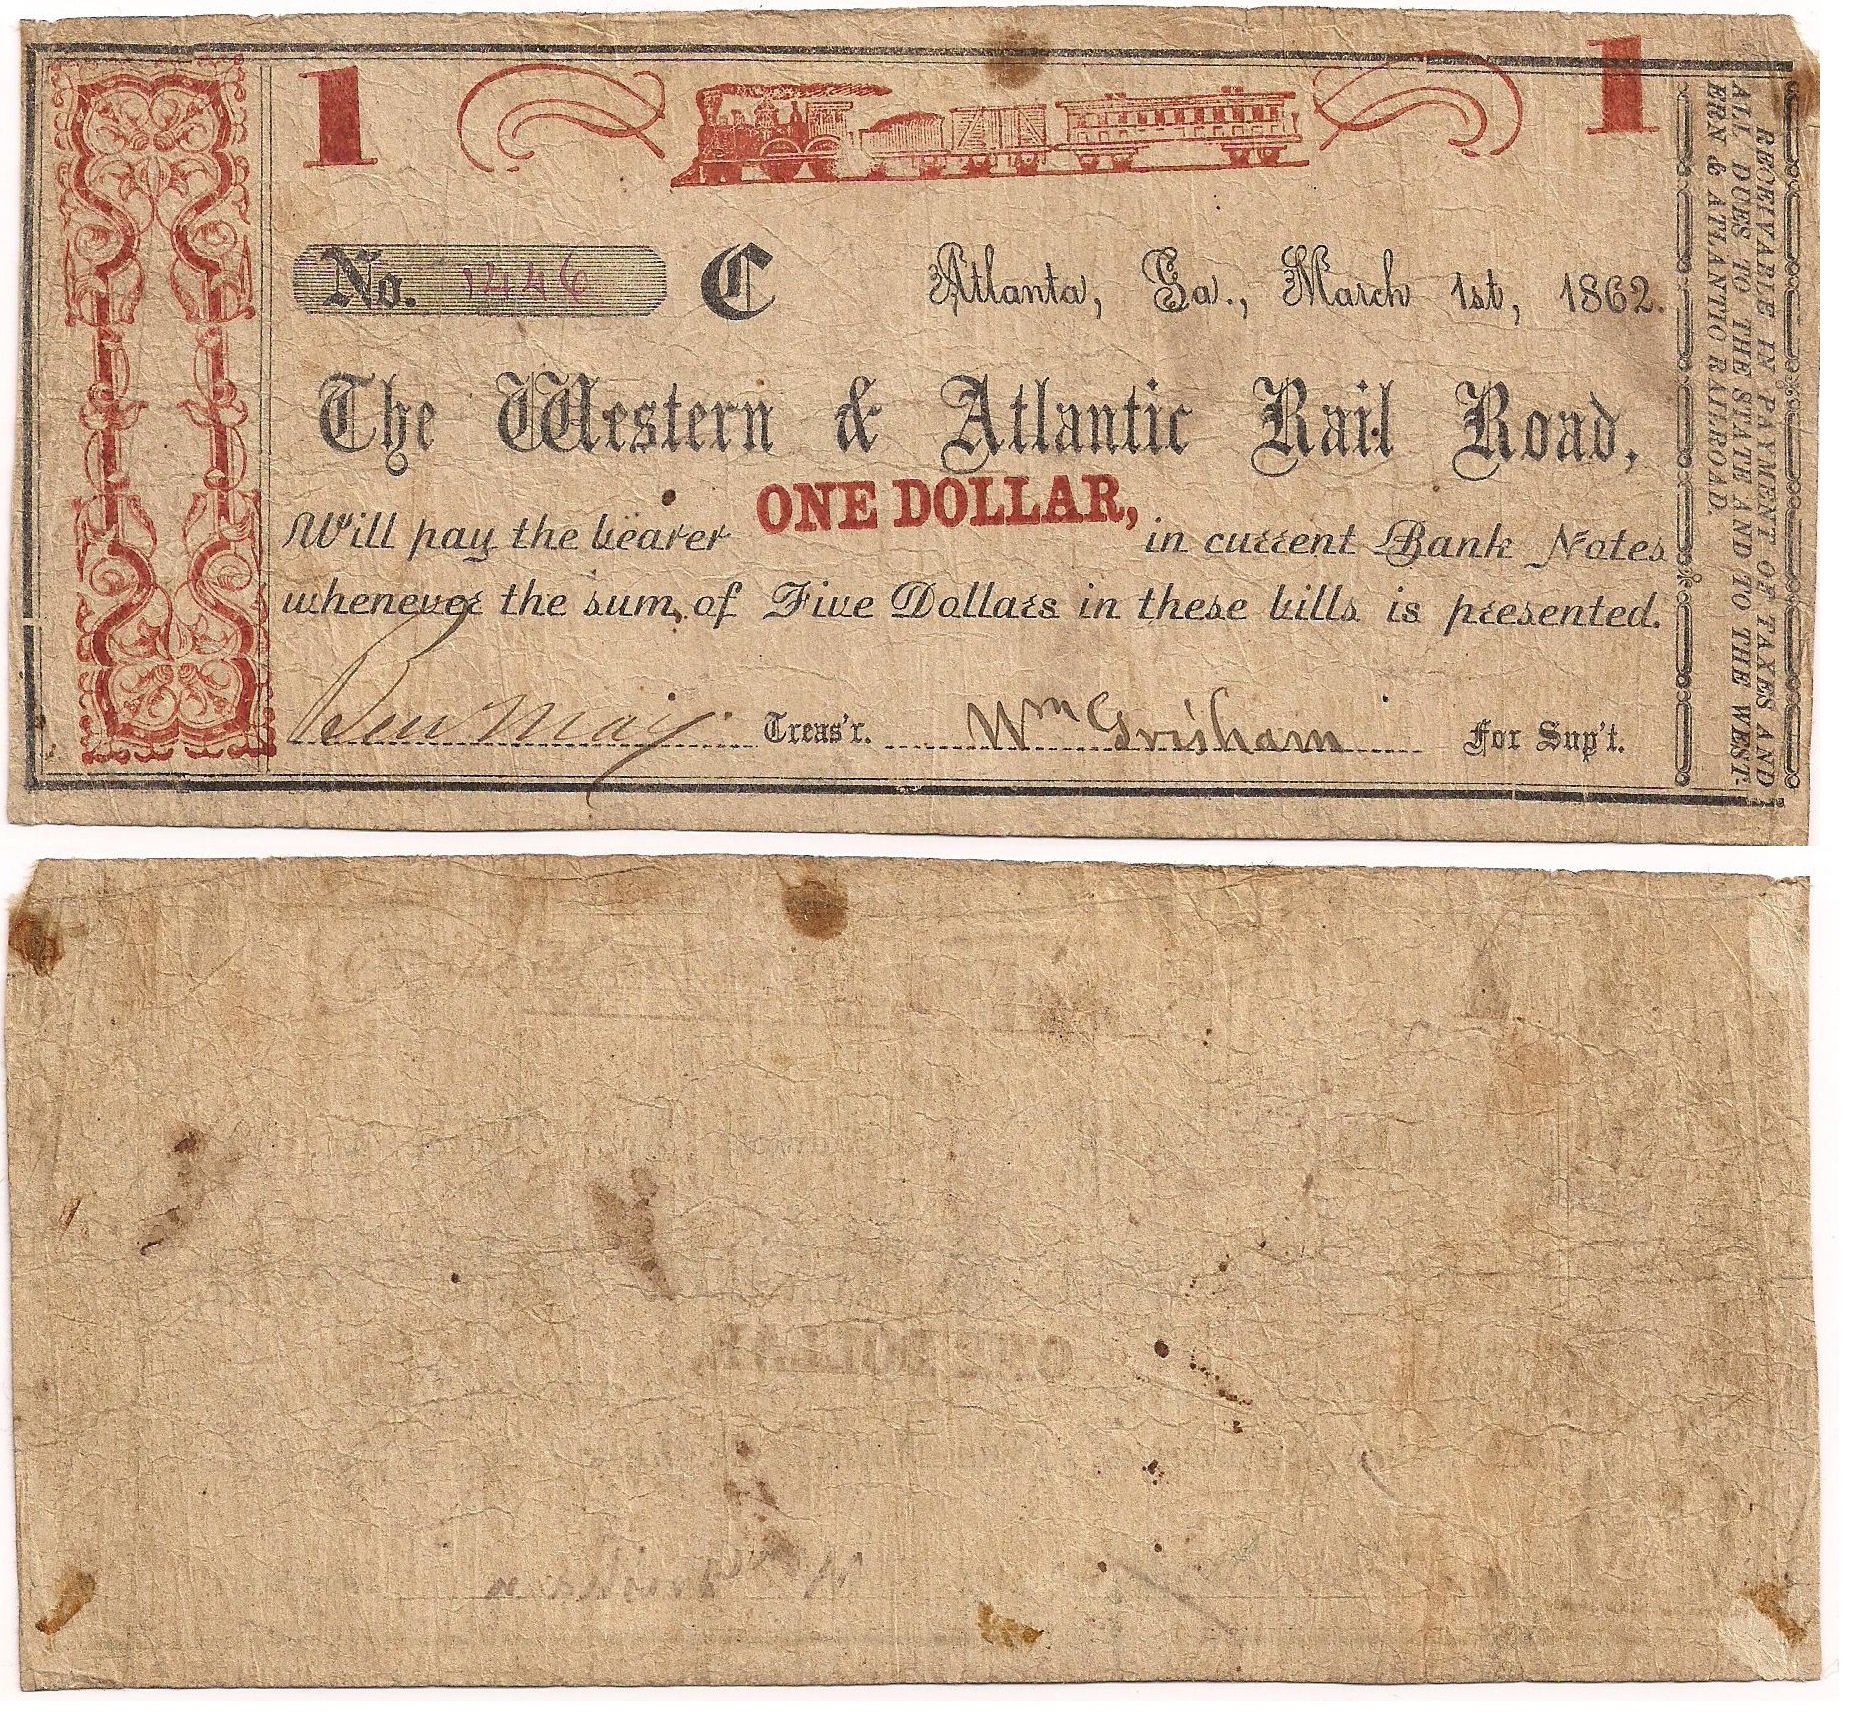 1 1
No. 1446 C Atlanta, Ga., March 1st, 1862.
The Western & Atlantic Rail Road,
Will pay the bearer ONE DOLLAR, in current Bank Notes
whenever the sum of Five Dollars in these bills is presented.
Ben May Treas'r. Wm Grisham For Sup't.
RECEIVABLE IN PAYMENT OF TAXES AND
ALL DUES TO THE STATE AND TO THE WEST-
ERN & ATLANTIC RAILROAD.